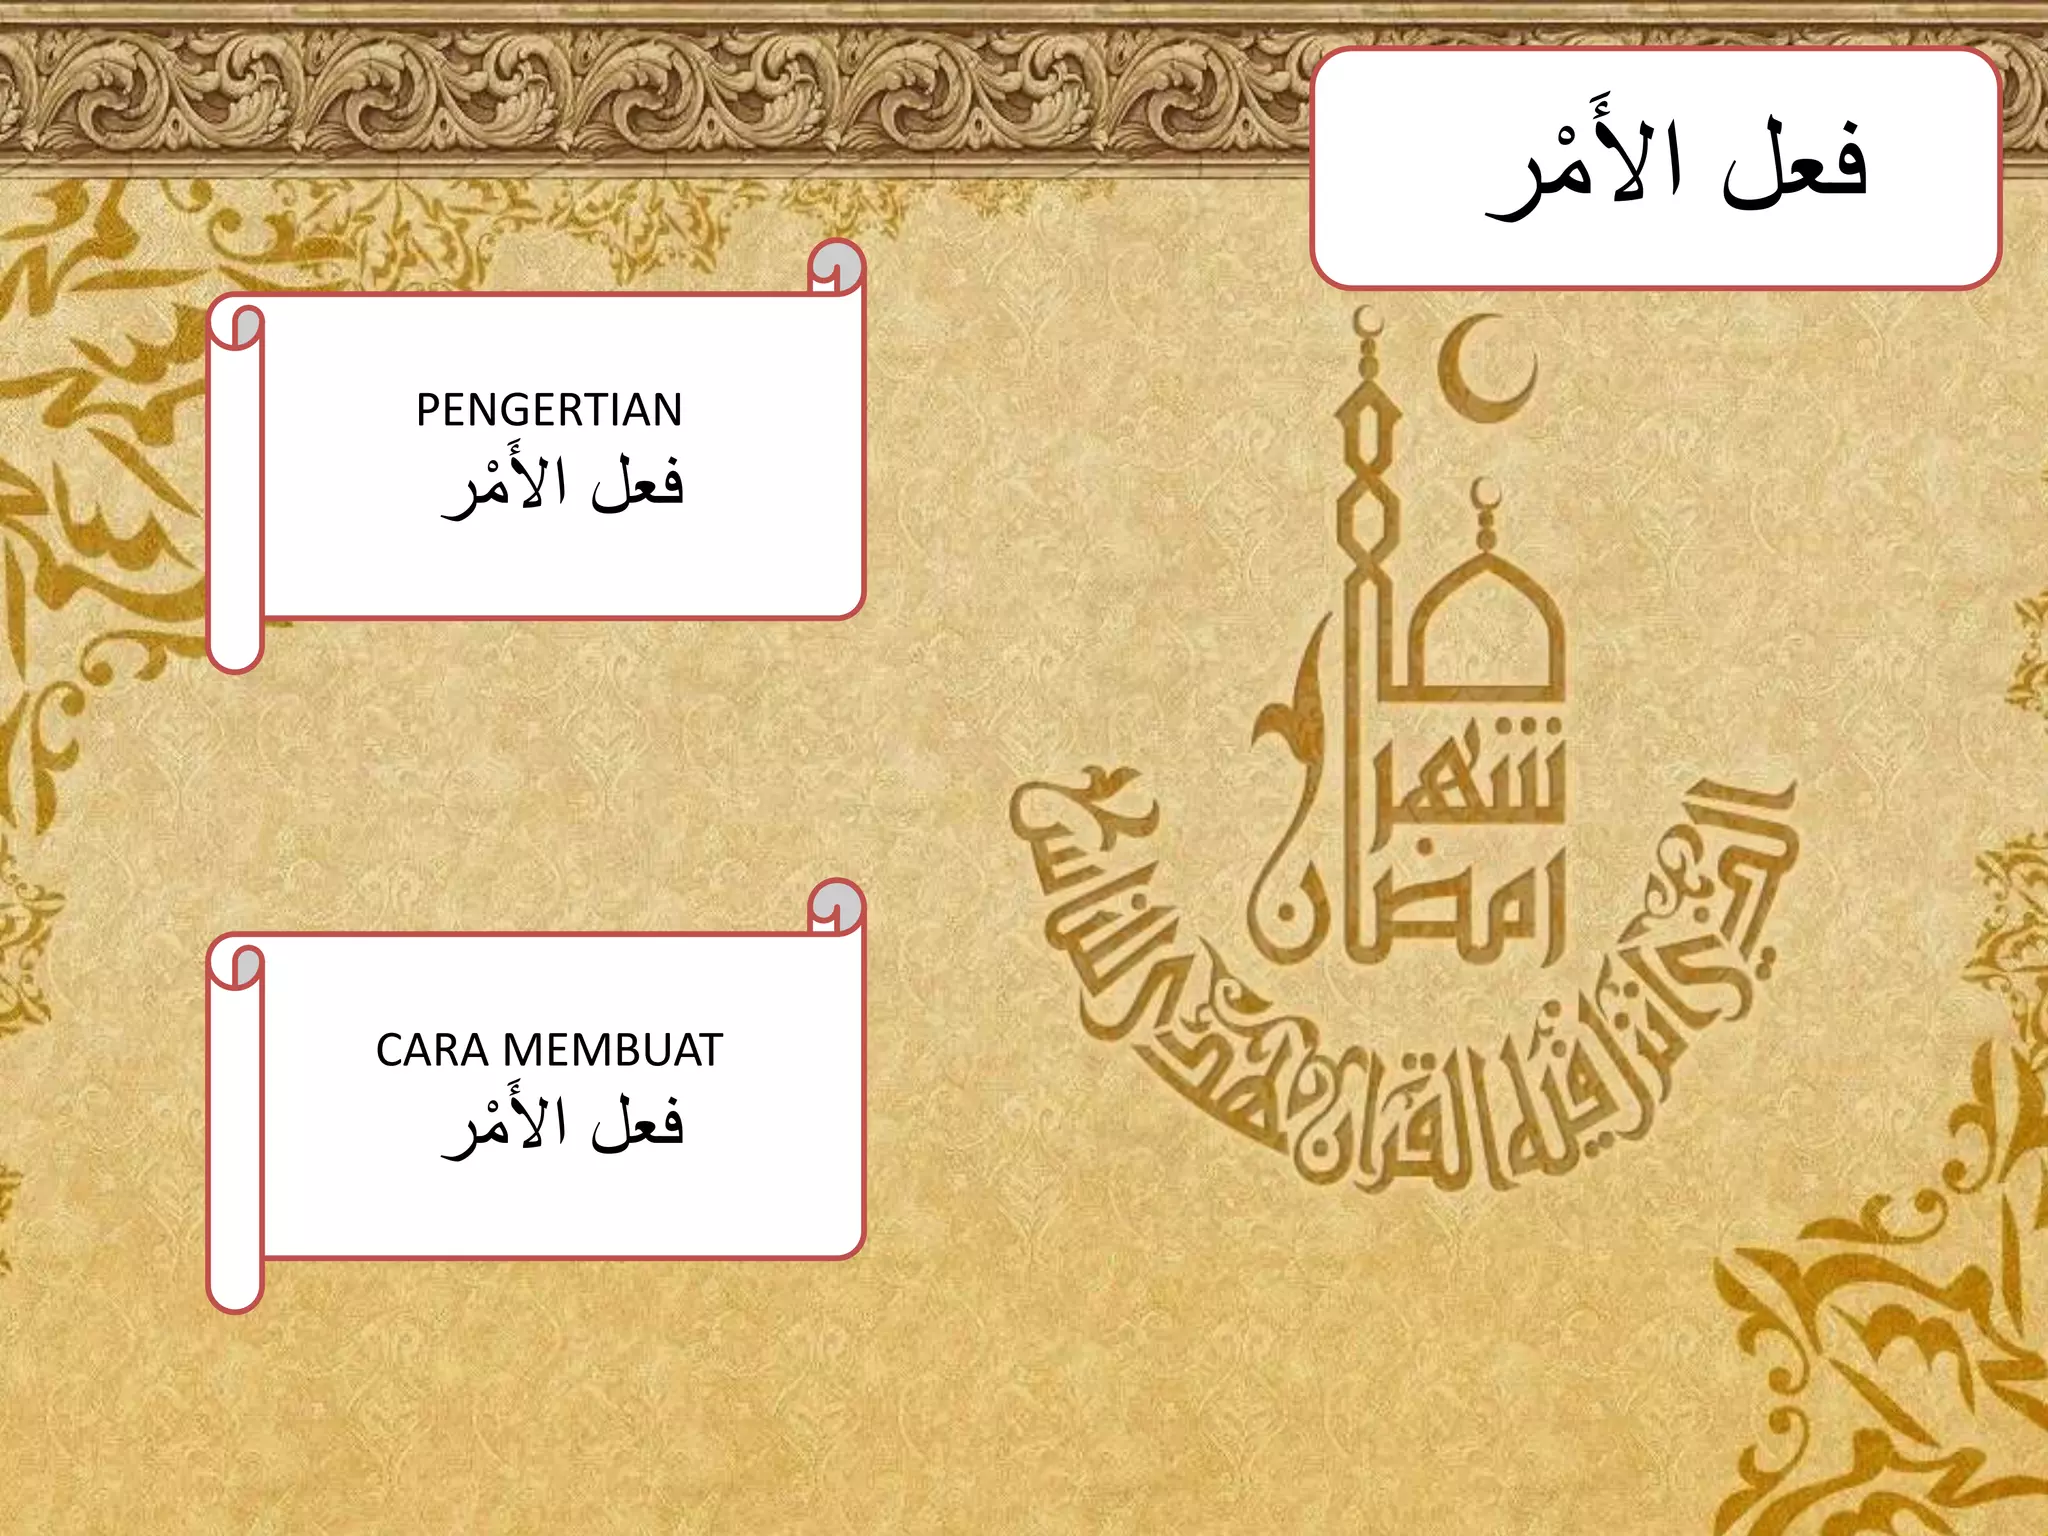 فعل الأَمْر
PENGERTIAN
فعل الأَمْر
CARA MEMBUAT
فعل الأَمْر
شهر
رمضان
الذي انزل فيه القران هدى للناس